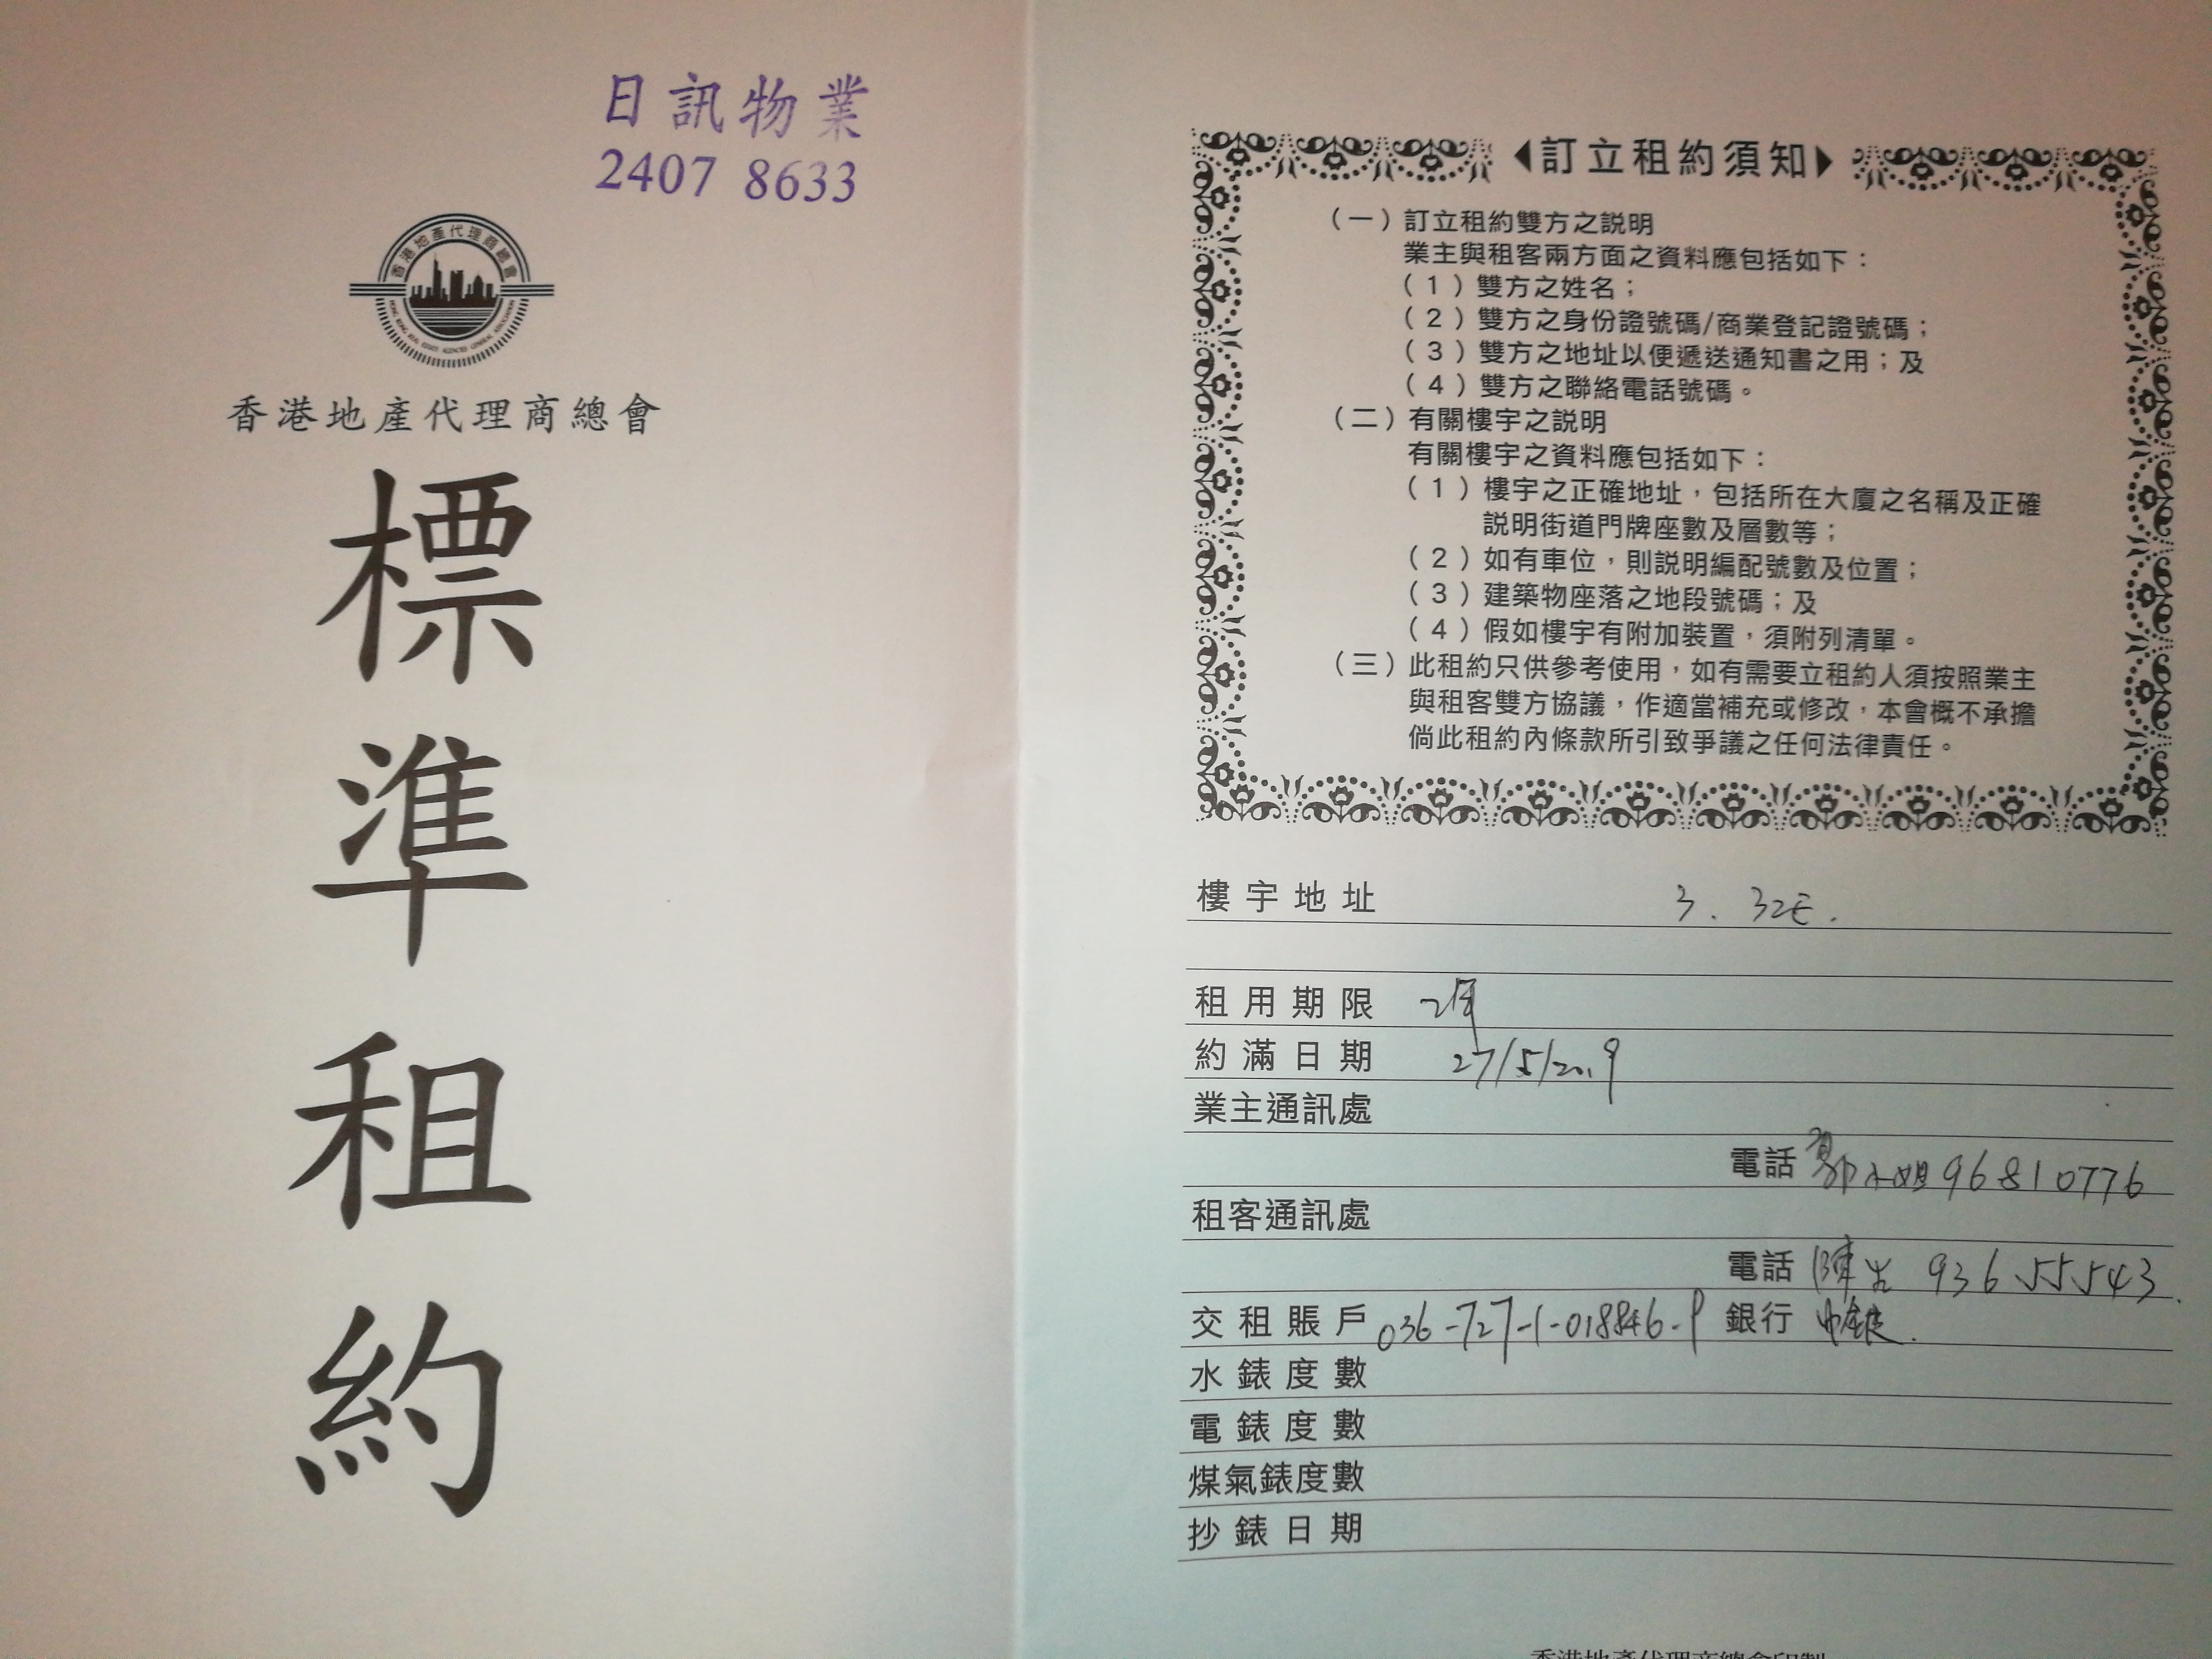 日訊物業
2407 8633
香港地產代理商總會
HONG KONG REAL ESTATE AGENCIES GENERAL ASSOCIATION
香港地產代理商總會
標準租約
◀訂立租約須知▶
（一）訂立租約雙方之說明
業主與租客兩方面之資料應包括如下：
（1）雙方之姓名；
（2）雙方之身份證號碼/商業登記證號碼；
（3）雙方之地址以便遞送通知書之用；及
（4）雙方之聯絡電話號碼。
（二）有關樓宇之說明
有關樓宇之資料應包括如下：
（1）樓宇之正確地址，包括所在大廈之名稱及正確
說明街道門牌座數及層數等；
（2）如有車位，則說明編配號數及位置；
（3）建築物座落之地段號碼；及
（4）假如樓宇有附加裝置，須附列清單。
（三）此租約只供參考使用，如有需要立租約人須按照業主
與租客雙方協議，作適當補充或修改，本會概不承擔
倘此租約內條款所引致爭議之任何法律責任。
樓宇地址 3. 32E.
租用期限 2年
約滿日期 27/5/2019
業主通訊處
電話 鄧小姐 96810776
租客通訊處
電話 陳生 93655543.
交租賬戶 036-727-1-018846-9 銀行 中銀.
水錶度數
電錶度數
煤氣錶度數
抄錶日期
香港地產代理商總會印製